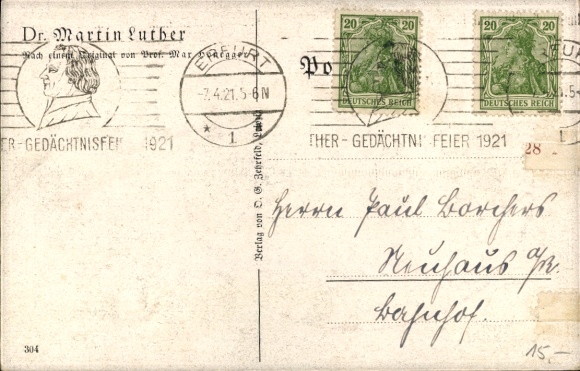 Dr. Martin Luther
Nach einem Original von Prof. Max
ERFURT
-7.4.21.5-6N
* 1
GEDÄCHTNISFEI 1921
Po
20 20
DEUTSCHES REICH
20 20
DEUTSCHES REICH
THER - GEDÄCHTNI FEIER 1921
28
Verlag von O. G. Zehrfeld, Leipzig
Herrn Paul Borchers
Neuhaus a/R.
Bahnhof.
304
15,-